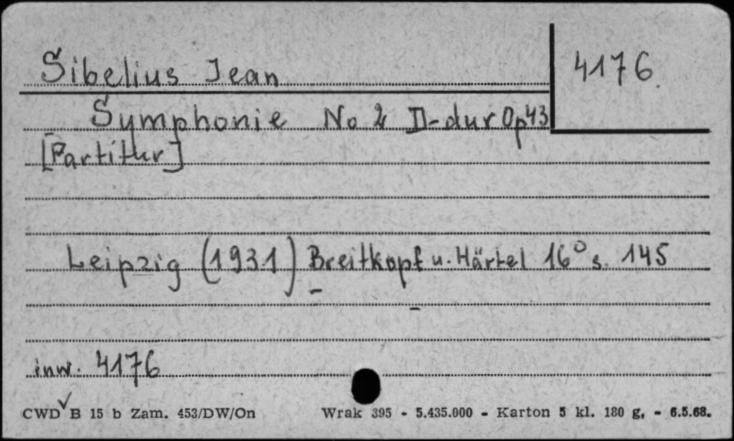 Sibelius Jean
4176
Symphonie No 2 D-dur Op 43
[Partitur]
Leipzig (1931) Breitkopf u. Härtel 16° s. 145
inw. 4176
CWD B 15 b Zam. 453/DW/On Wrak 395 - 5.435.000 - Karton 5 kl. 180 g. - 6.5.68.